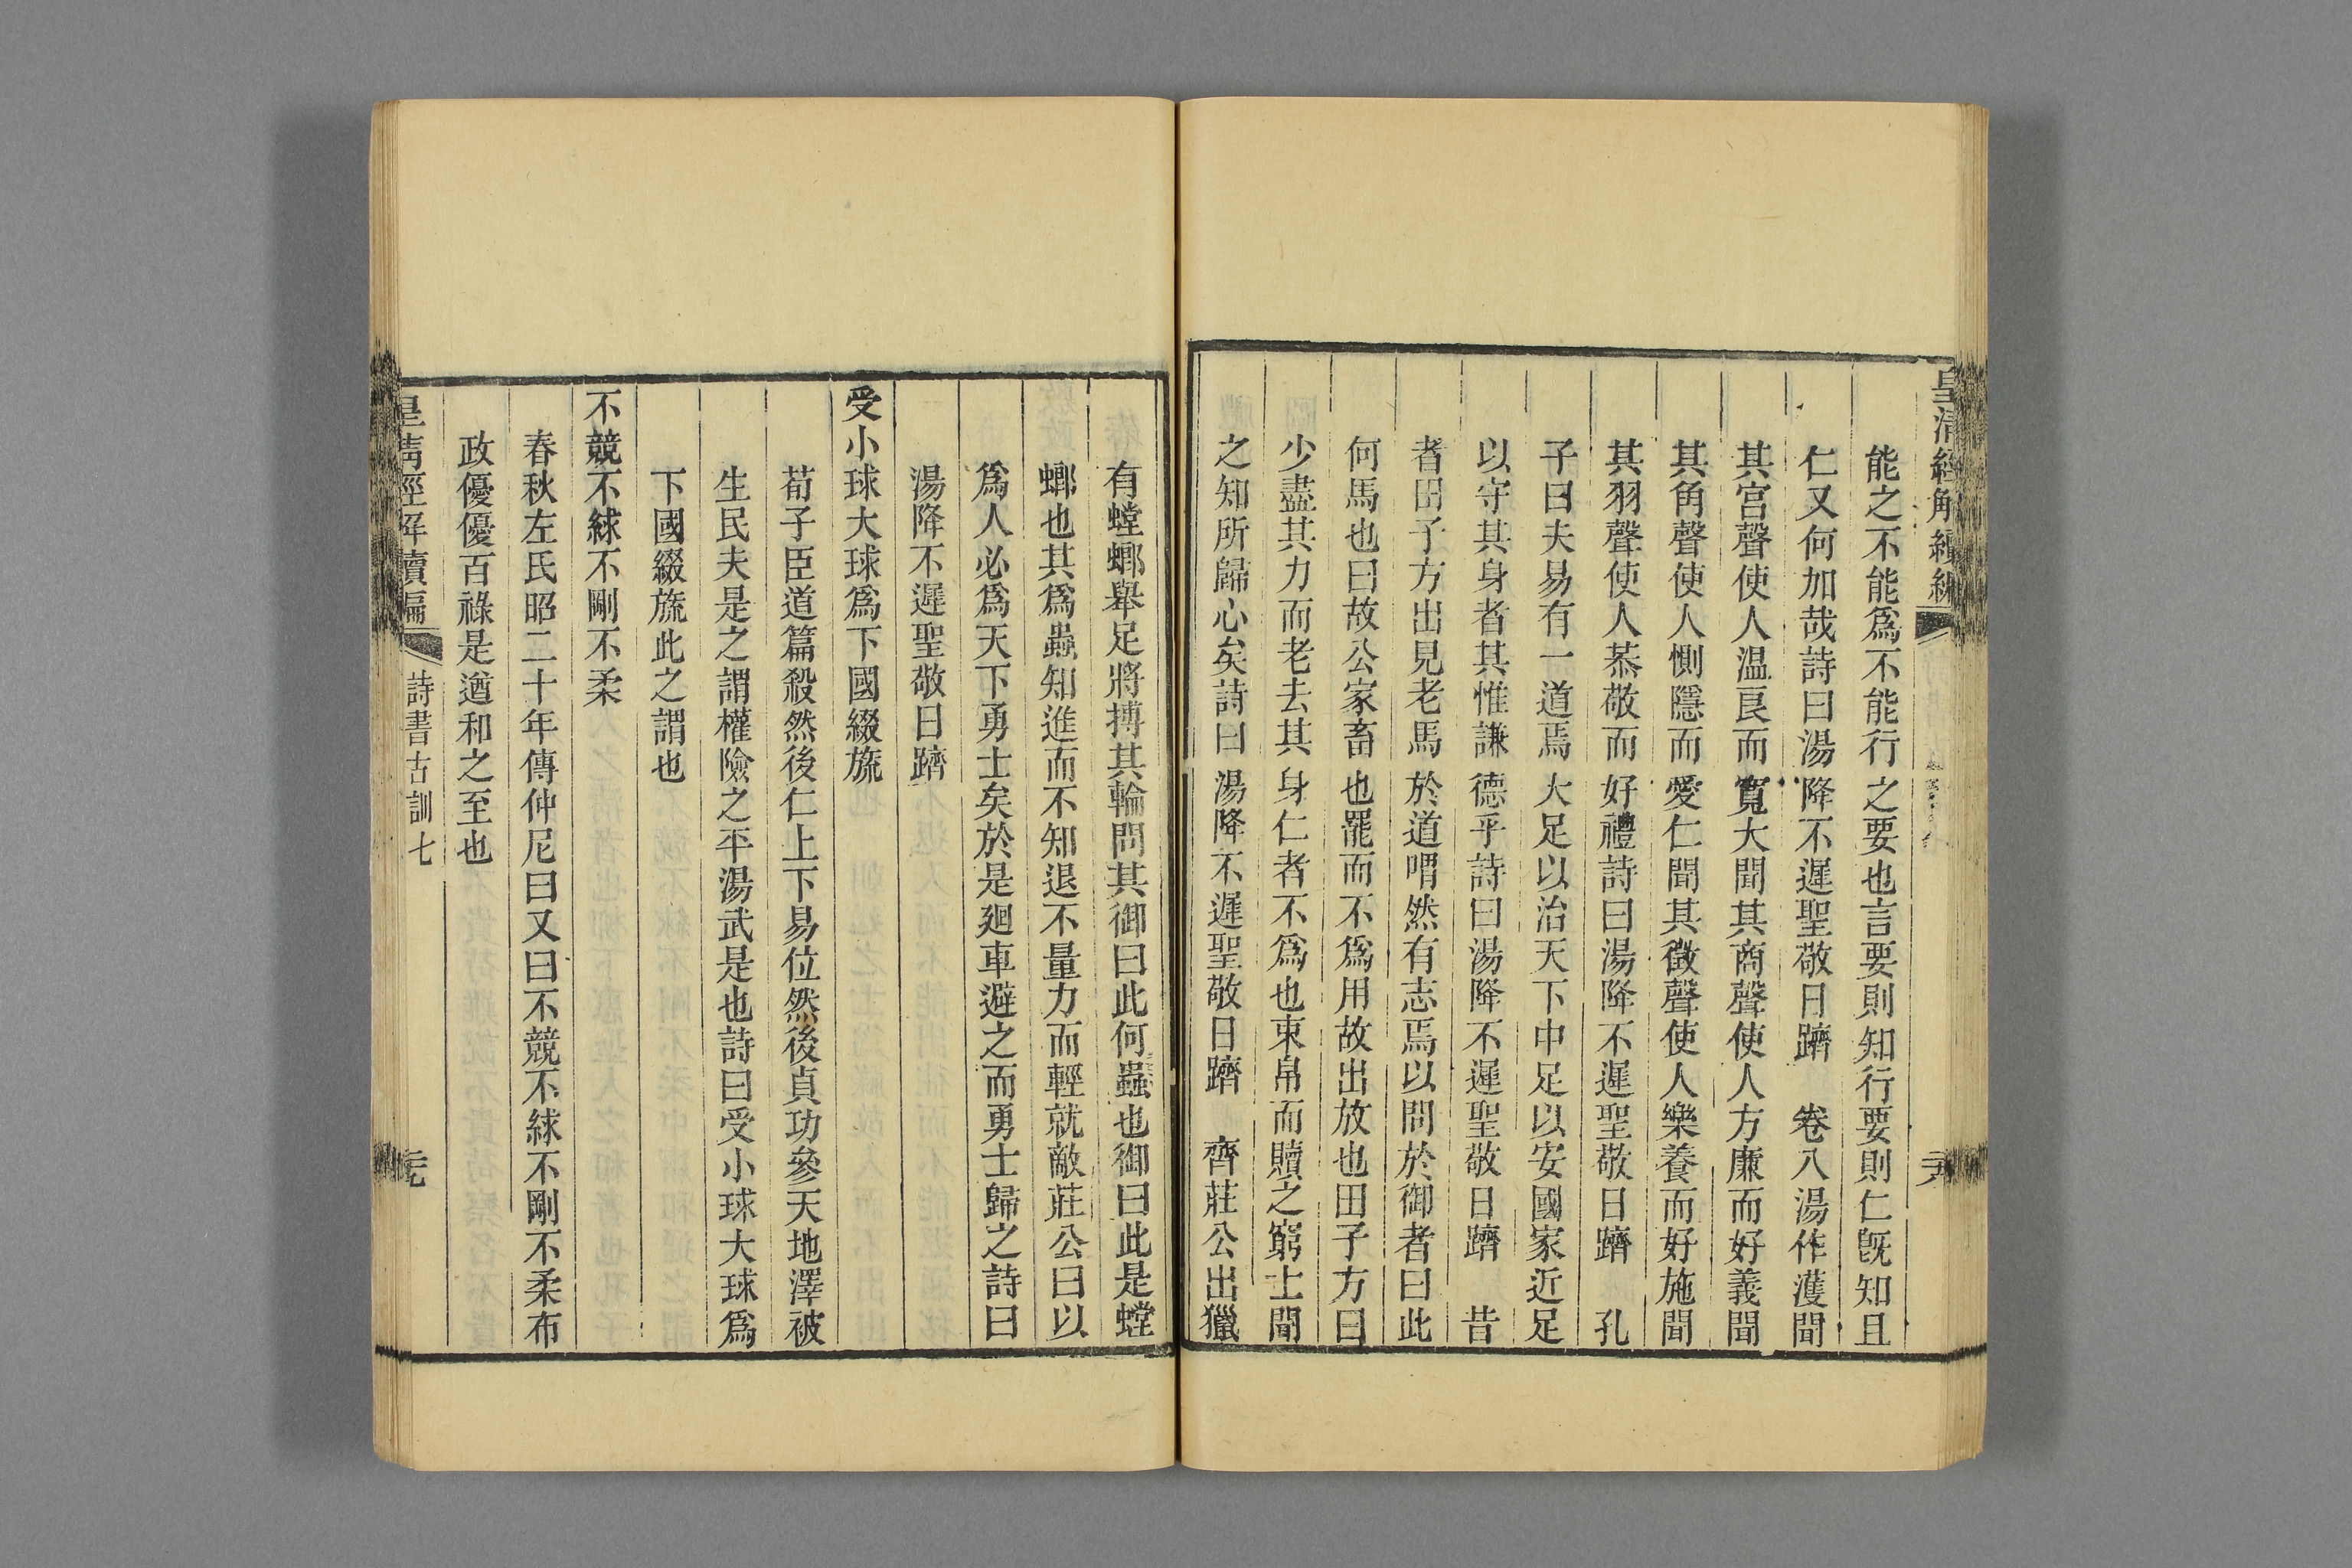 皇清經解續編
能之不能爲不能行之要也言要則知行要則仁旣知且
仁又何加哉詩曰湯降不遲聖敬日躋　卷八湯作濩聞
其宮聲使人温良而寬大聞其商聲使人方廉而好義聞
其角聲使人惻隱而愛仁聞其徵聲使人樂養而好施聞
其羽聲使人恭敬而好禮詩曰湯降不遲聖敬日躋　孔
子曰夫易有一道焉大足以治天下中足以安國家近足
以守其身者其惟謙德乎詩曰湯降不遲聖敬日躋　昔
者田子方出見老馬於道喟然有志焉以問於御者曰此
何馬也曰故公家畜也罷而不爲用故出放也田子方曰
少盡其力而老去其身仁者不爲也束帛而贖之窮士聞
之知所歸心矣詩曰湯降不遲聖敬日躋　齊莊公出獵
有螳螂舉足將搏其輪問其御曰此何蟲也御曰此是螳
螂也其爲蟲知進而不知退不量力而輕就敵莊公曰以
爲人必爲天下勇士矣於是廻車避之而勇士歸之詩曰
湯降不遲聖敬日躋
受小球大球爲下國綴旒
荀子臣道篇殺然後仁上下易位然後貞功參天地澤被
生民夫是之謂權險之平湯武是也詩曰受小球大球爲
下國綴旒此之謂也
不競不絿不剛不柔
春秋左氏昭二十年傳仲尼曰又曰不競不絿不剛不柔布
政優優百祿是遒和之至也
皇清經解續編　詩書古訓七